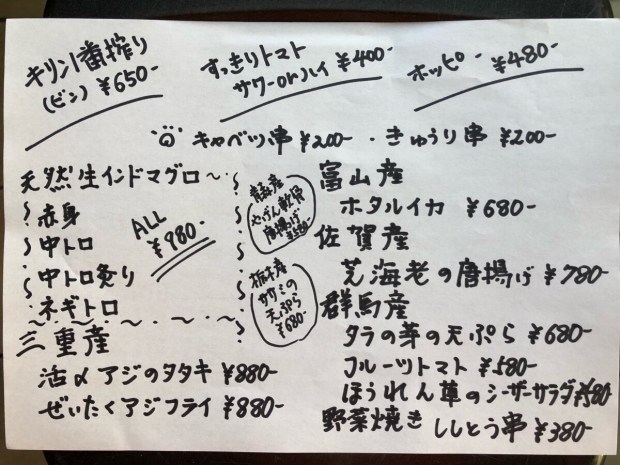 キリン一番搾り
(ビン) ¥650-
すっきりトマト
サワーorハイ ¥400-
ホッピー ¥480-
キャベツ串 ¥200- ・きゅうり串 ¥200-
天然生インドマグロ
赤身
中トロ
中トロ炙り
ネギトロ
ALL
¥980-
青森産
やげん軟骨
唐揚げ
¥580-
栃木産
ササミの
天ぷら
¥680-
三重産
活〆アジのタタキ ¥880-
ぜいたくアジフライ ¥880-
富山産
ホタルイカ ¥680-
佐賀産
芝海老の唐揚げ ¥780-
群馬産
タラの芽の天ぷら ¥680-
フルーツトマト ¥580-
ほうれん草のシーザーサラダ ¥580
野菜焼き ししとう串 ¥380-